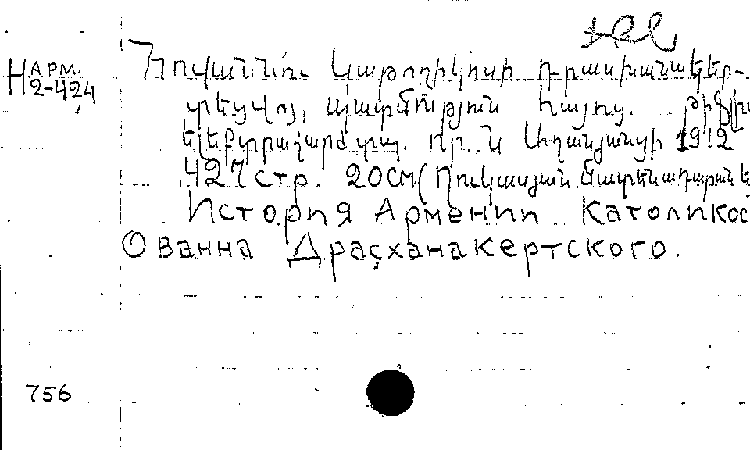 АРМ.
Н 2-424
Յովաննու Կաթողիկոսի Դրասխանակեր-
տեցւոյ պատմութիւն հայոց. Թիֆլիս
էլեքտրաշարժ տպ. Օր. Ն. Աղանյանցի 1912
427 стр. 20см (Ղուկասյան Մատենադարան
История Армении Католикос
Ованна Драсханакертского.
756